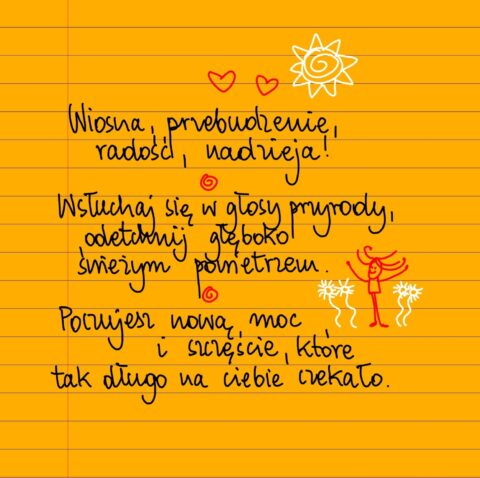 Wiosna, przebudzenie,
radość, nadzieja!
Wsłuchaj się w głosy przyrody,
odetchnij głęboko
świeżym powietrzem.
Poczujesz nową, moc
i szczęście, które
tak długo na ciebie czekało.